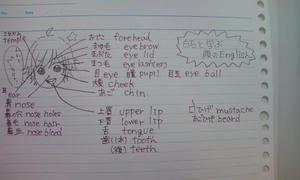 こめかみ
temple
おでこ forehead
まゆ毛 eyebrow
まぶた eye lid
まつ毛 eyelash(es)
目 eye 瞳 pupil 目玉 eye ball
頬 cheek
あご chin
耳
ear
鼻 nose
鼻の穴 nose holes
鼻毛 nose hair
鼻血 nose blood
上唇 upper lip
下唇 lower lip
舌 tongue
歯(1本) tooth
(複) teeth
と学ぶ
顔のEnglish
口ひげ mustache
あごひげ beard